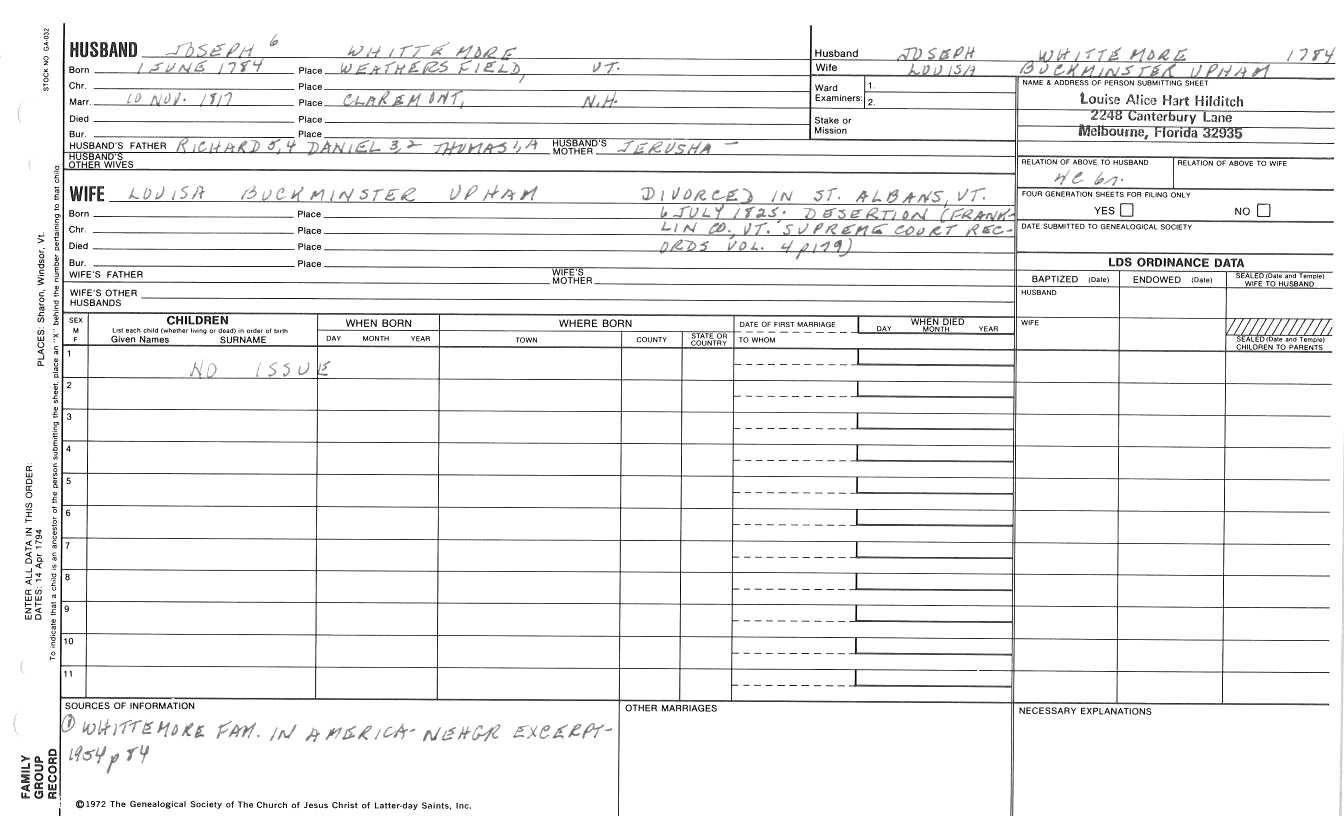 STOCK NO GA-032
HUSBAND JOSEPH 6 WHITTEMORE
Born 1 JUNE 1784 Place WEATHERSFIELD, VT.
Chr. Place
Marr. 10 NOV. 1817 Place CLAREMONT, N.H.
Died Place
Bur. Place
HUSBAND'S FATHER RICHARD 5,4 DANIEL 3,2 THOMAS 1,A HUSBAND'S MOTHER JERUSHA —
HUSBAND'S OTHER WIVES
Husband JOSEPH WHITTEMORE 1784
Wife LOUISA BUCKMINSTER UPHAM
Ward Examiners: 1.
2.
Stake or Mission
NAME & ADDRESS OF PERSON SUBMITTING SHEET
Louise Alice Hart Hilditch
2248 Canterbury Lane
Melbourne, Florida 32935
RELATION OF ABOVE TO HUSBAND RELATION OF ABOVE TO WIFE
4C 6r.
FOUR GENERATION SHEETS FOR FILING ONLY
YES NO
DATE SUBMITTED TO GENEALOGICAL SOCIETY
WIFE LOUISA BUCKMINSTER UPHAM DIVORCED IN ST. ALBANS, VT.
Born Place 6 JULY 1825; DESERTION (FRANK-
Chr. Place LIN CO., VT. SUPREME COURT REC-
Died Place ORDS VOL. 4 p179)
Bur. Place
WIFE'S FATHER WIFE'S MOTHER
WIFE'S OTHER HUSBANDS
LDS ORDINANCE DATA
BAPTIZED (Date) ENDOWED (Date) SEALED (Date and Temple) WIFE TO HUSBAND
HUSBAND
WIFE
SEALED (Date and Temple) CHILDREN TO PARENTS
SEX M F
CHILDREN
List each child (whether living or dead) in order of birth
Given Names SURNAME
WHEN BORN
DAY MONTH YEAR
WHERE BORN
TOWN COUNTY STATE OR COUNTRY
DATE OF FIRST MARRIAGE
TO WHOM
WHEN DIED
DAY MONTH YEAR
1 NO ISSUE
2
3
4
5
6
7
8
9
10
11
SOURCES OF INFORMATION
① WHITTEMORE FAM. IN AMERICA- NEHGR EXCERPT-
1954 p 84
OTHER MARRIAGES
NECESSARY EXPLANATIONS
©1972 The Genealogical Society of The Church of Jesus Christ of Latter-day Saints, Inc.
ENTER ALL DATA IN THIS ORDER:
DATES: 14 Apr 1794
PLACES: Sharon, Windsor, Vt.
To indicate that a child is an ancestor of the person submitting the sheet, place an "X" behind the number pertaining to that child.
FAMILY
GROUP
RECORD